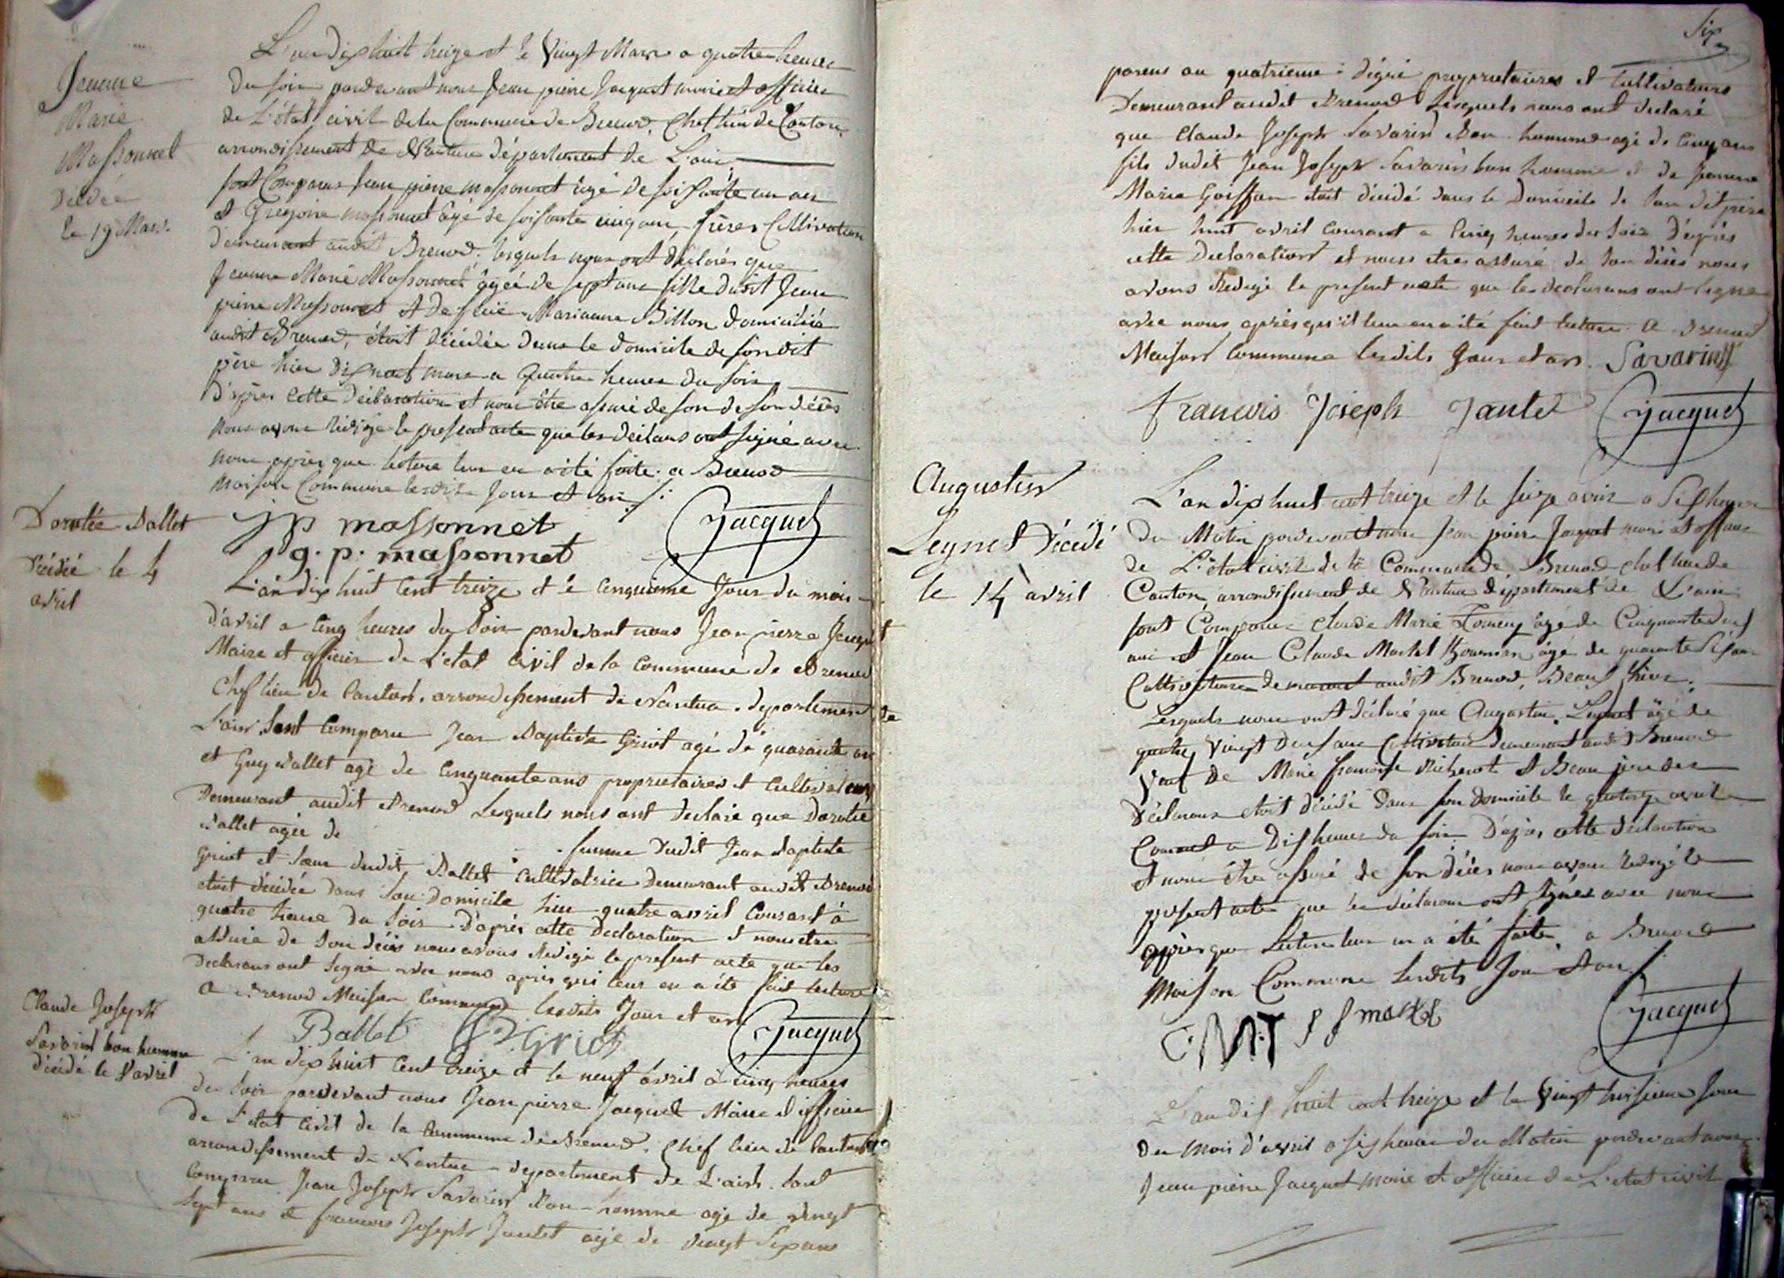 Jeanne
Marie
Massonnet
Décédée
le 19 Mars.
L'an dix huit treize et le Vingt Mars a quatre heures
Du soir pardevant nous Jean pierre Jacquet maire et officier
de L'état civil de la Commune de Brenod, Chef lieu de Canton,
arrondissement de Nantua département de L'ain
sont Comparus Jean pierre massonnet âgé de soissante un an
et Gregoire massonnet âgé de soissante cinq ans frères Cultivateurs
demeurant audit Brenod. lesquels nous ont déclarés que
Jeanne Marie Massonnet âgée de sept ans fille dudit Jean
pierre Massonnet et De feüe Marianne Billon domiciliée
audit Brenod, étoit décédée dans le domicile de son dit
père hier dix neuf mars a quatre heures du soir,
D'après cette déclaration et nous être assuré de son de son décès
nous avons rédigé le présent acte que les déclarans ont signé avec
nous après que lecture leur en a été faite. a Brenod
maison Commune lesdits Jour et an
jp massonnet
g. p. massonnet
Jacquet
Dorotée Ballet
décédée le 4
avril
L'an dix huit Cent treize et le cinquieme Jour du mois
d'avril a cinq heures du soir pardevant nous Jean pierre Jacquet
Maire et officier de L'état civil de la commune de Brenod
Chef lieu de Canton. arrondissement de Nantua. departement de
L'ain sont comparu Jean Baptiste Griot agé de quarante ans
et Guy Ballet agé de cinquante ans proprietaires et cultivateurs
Demeurant audit Brenod Lesquels nous ont declaré que Dorotée
Ballet agée de femme dudit Jean Baptiste
Griot et soeur dudit Ballet cultivatrice demeurant audit Brenod
étoit décédée dans son domicile hier quatre avril Courant à
quatre heure du soir. D'après cette Declaration et nous etre
assuré de son décès nous avons Redigé le present acte que les
Declarans ont signé avec nous après qui leur en a été fait lecture
a Brenod Maison commune lesdits Jour et an
Ballet Griot Jacquet
Claude Joseph
Savarin bon homme
décédé le 8 avril
L'an dix huit Cent treize et le neuf avril à cinq heures
du soir pardevant nous Jean pierre Jacquet Maire et officier
de L'état civil de la commune de Brenod. Chef lieu de Canton
arrondissement de Nantua departement de L'ain. sont
comparu Jean Joseph Savarin Bon-homme agé de vingt
sept ans et francois Joseph Jantet agé de vingt six ans
Six
parens au quatrieme dégré proprietaires et Cultivateurs
Demeurant audit Brenod Lesquels nous ont declaré
que Claude Joseph Savarin Bon homme agé de cinq ans
fils dudit Jean Joseph Savarin bon homme et de Jeanne
Marie Goiffon étoit décédé dans le Domicile de son dit père
hier huit avril courant a Cinq heures du soir D'après
cette Declaration et nous etre assuré de son décès nous
avons Redigé le present acte que les declarans ont signé
avec nous après qu'il leur en a été fait lecture. a Brenod
Maison Commune lesdits Jour et an. Savarin
francois Joseph Jantet Jacquet
Augustin
Leynet Décédé
le 14 avril
L'an dix huit cent treize et le seize avril a sept heures
Du Matin pardevant nous Jean pierre Jacquet maire et officier
de L'état civil de la Commune de Brenod chef lieu de
Canton, arrondissement de Nantua département de L'ain
sont Comparus Claude Marie agé de Cinquante deux
ans et Jean Claude Martel agé de quarante six ans
Cultivateurs demeurant audit Brenod, Beaux frères.
Lesquels nous ont déclaré que Augustin Leynet agé de
quatre Vingt deux ans Cultivateur demeurant audit Brenod
Veuf de Marie francoise et Beau père des
Déclarans étoit décédé Dans son domicile le quatorze avril
Courant a Dix heures du soir D'après cette déclaration
et nous être assuré de son décès nous avons redigé le
présent acte que les déclarans ont signés avec nous
après que Lecture leur en a été faite, a Brenod
Maison Commune lesdits Jour et an
C.M.T J J martel Jacquet
L'an dix huit cent treize et le Vingt troisieme Jour
du mois d'avril a six heures du Matin pardevant nous
Jean pierre Jacquet maire et officier de L'état civil